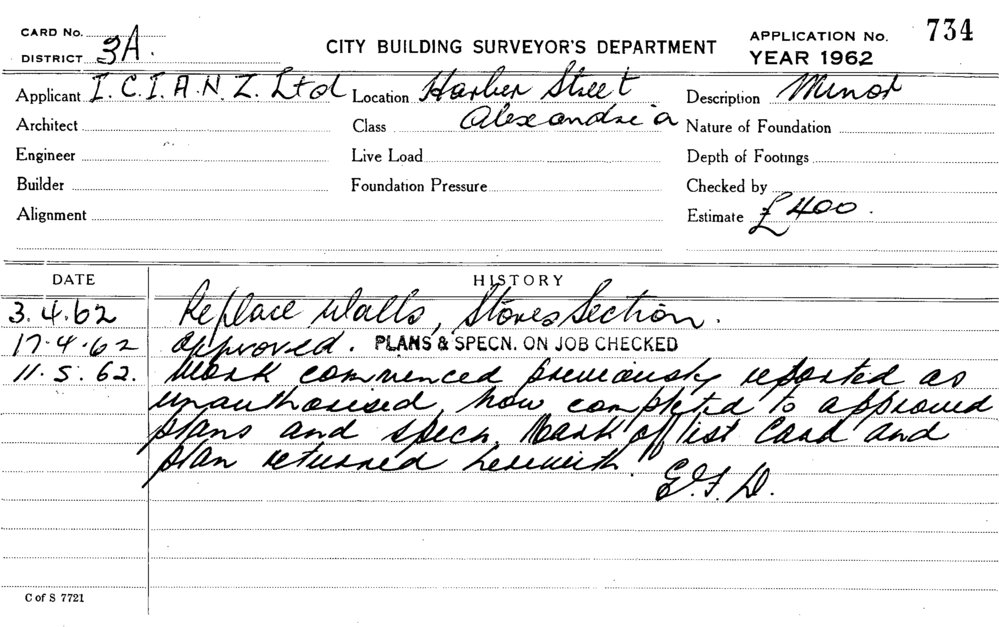 CARD No.
DISTRICT 3A.
CITY BUILDING SURVEYOR'S DEPARTMENT
APPLICATION No. 734
YEAR 1962
Applicant I.C.I.A.N.Z. Ltd Location Harber Street Description Minor
Architect Class Alexandria Nature of Foundation
Engineer Live Load Depth of Footings
Builder Foundation Pressure Checked by
Alignment Estimate £400.
DATE HISTORY
3.4.62 Replace Walls, Stores Section.
17.4.62 approved. PLANS & SPECN. ON JOB CHECKED
11.5.62. Work commenced previously reported as
unauthorised, now completed to approved
plans and specn. Mark off list Card and
plan returned herewith.
C of S 7721